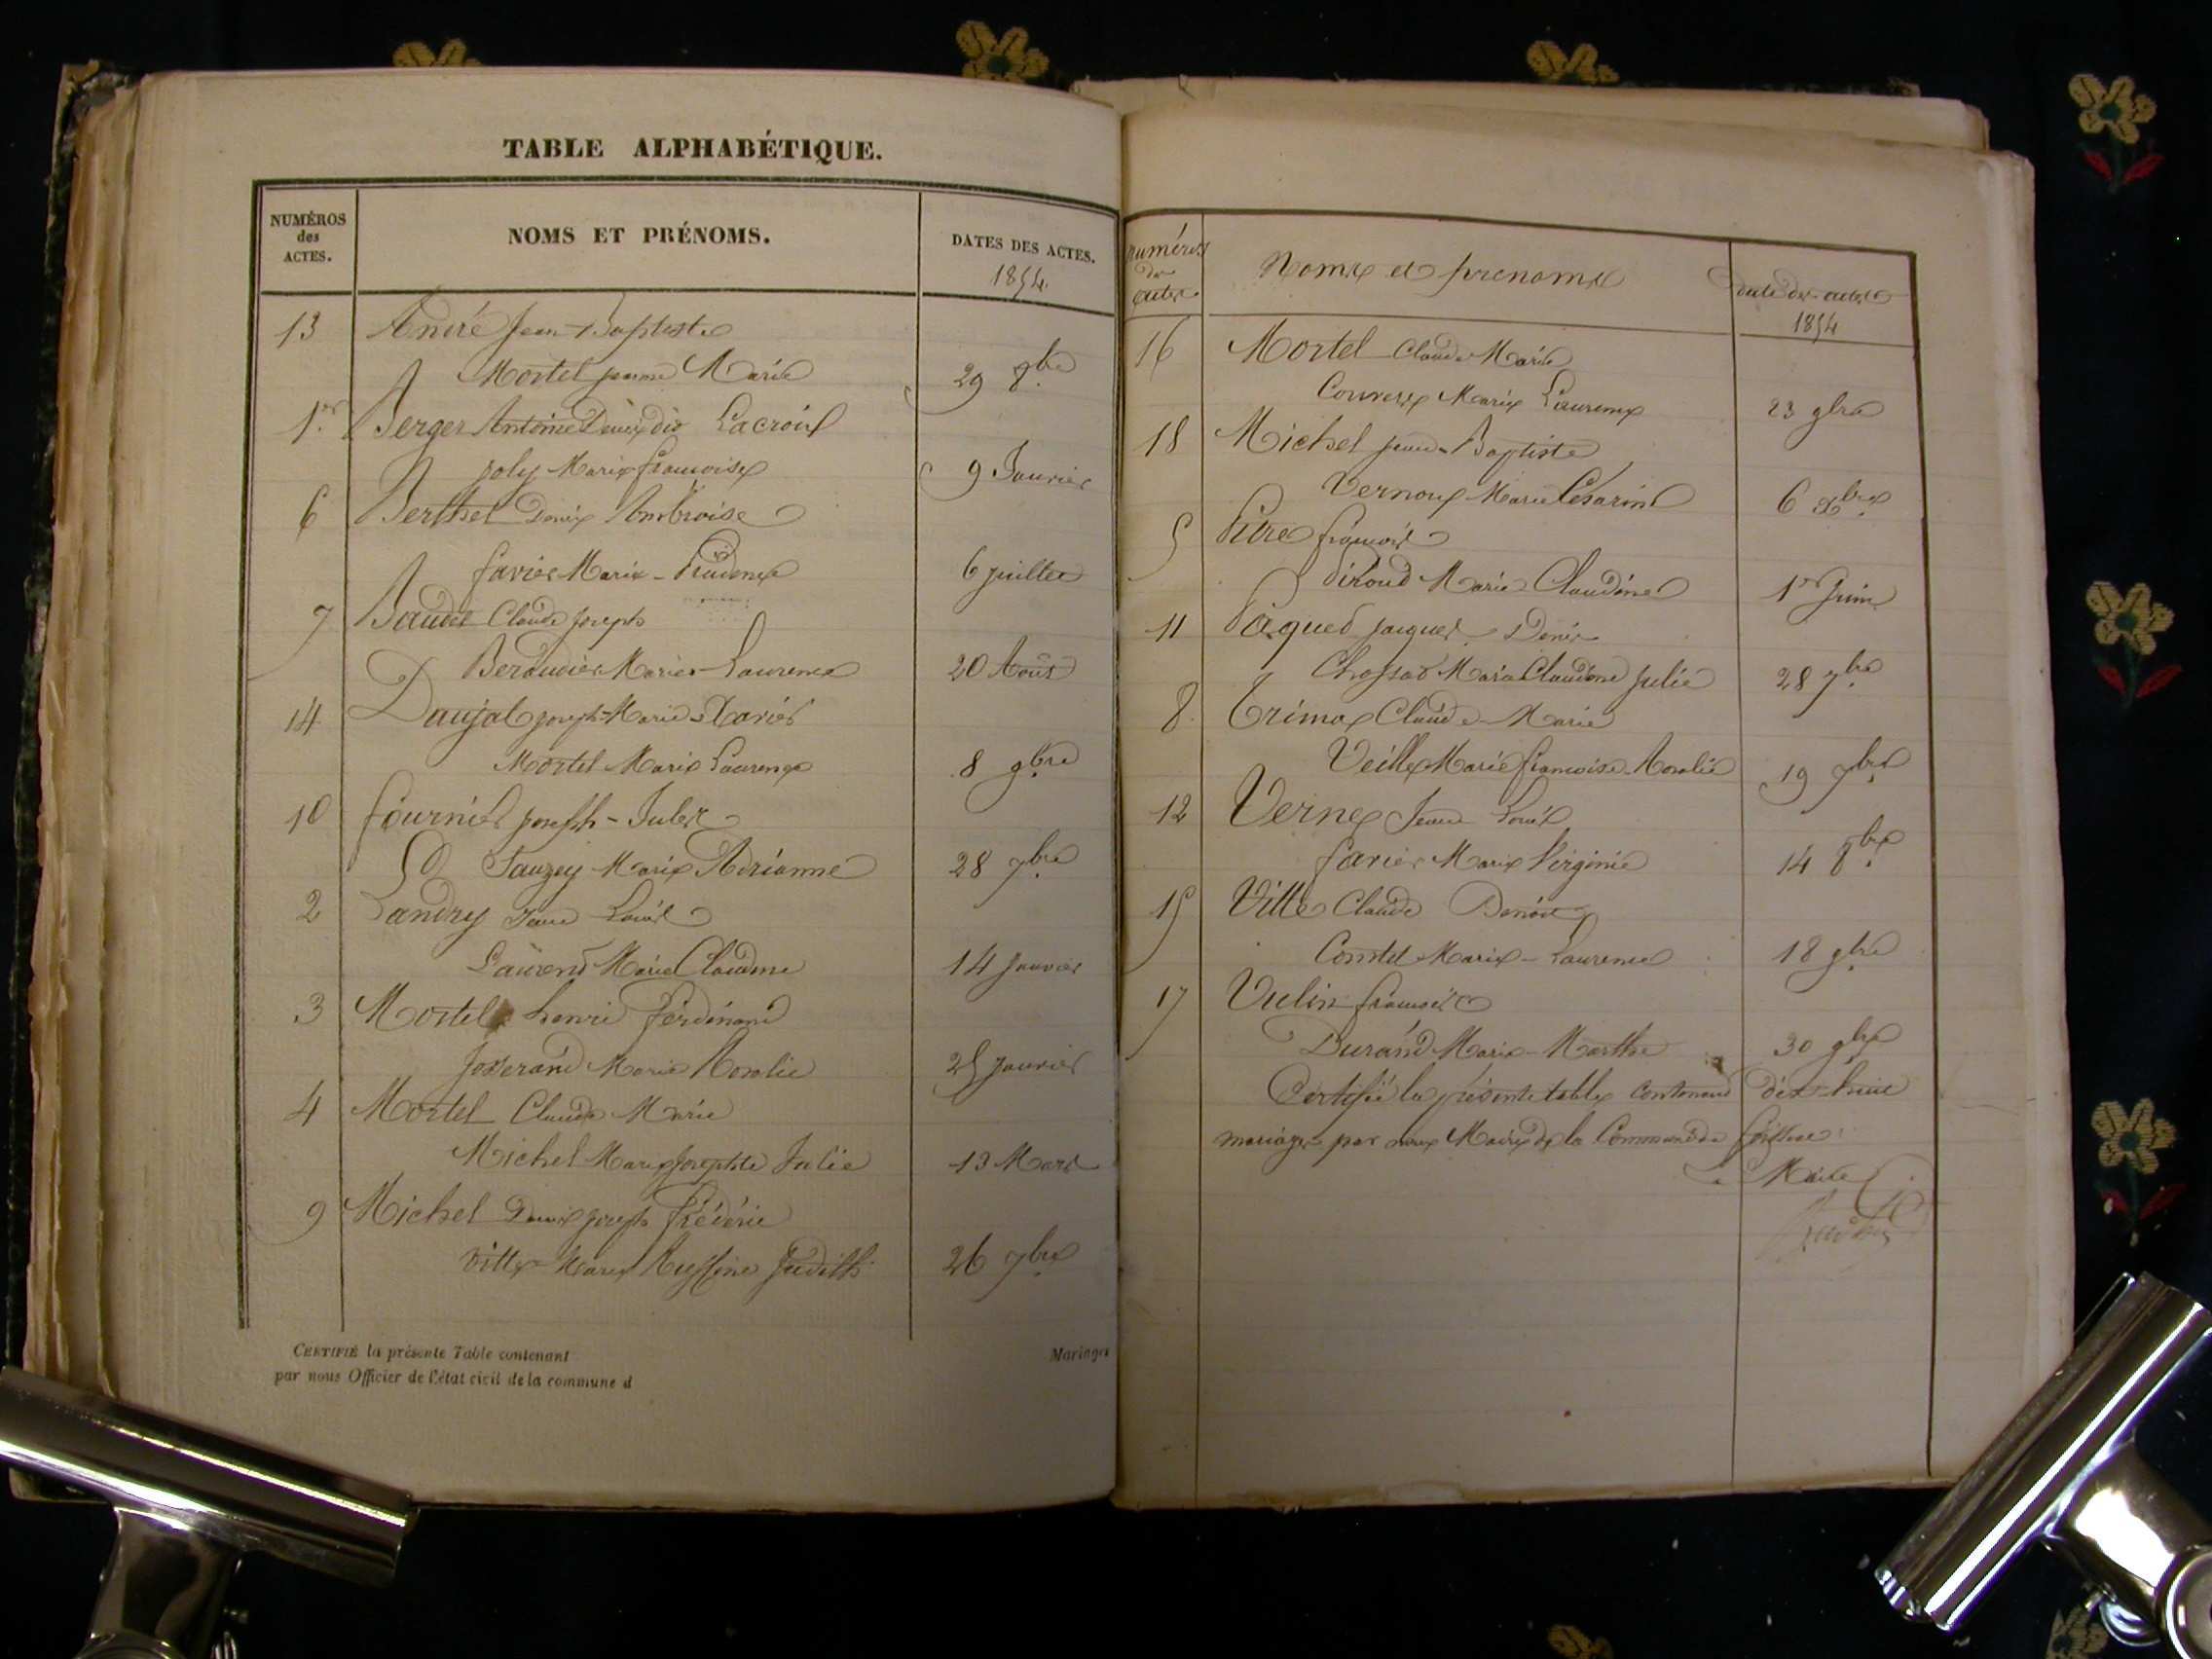 TABLE ALPHABÉTIQUE.
NUMÉROS des ACTES.
NOMS ET PRÉNOMS.
DATES DES ACTES.
1854.
13 André Jean-Baptiste
Mortel jeanne Marie 29 8bre
1er Berger Antoine Denis dit Lacroix
joly Marie françoise 9 Janvier
6 Berthet Denis Ambroise
favier Marie-Prudence 6 juillet
7 Baudet Claude joseph
Beraudier Marie-Laurence 20 Août
14 Daujat joseph-Marie-Xavier
Mortel Marie Laurence 8 9bre
10 fournier joseph-Jules
Sauzey Marie Adrianne 28 7bre
2 Landry Jean Louis
Laurent Marie Claudine 14 janvier
3 Mortel henri ferdinand
josserand Marie Rosalie 25 janvier
4 Mortel Claude Marie
Michel Marie josephte Julie 13 Mars
9 Michel Denis joseph frédéric
vitte Marie Ruffine judith 26 7bre
CERTIFIÉ la présente Table contenant Mariages
par nous Officier de l'état civil de la commune d
numéros des actes
Noms et prenoms
date des actes
1854
16 Mortel Claude Marie
Marie Laurence 23 9bre
18 Michel jean-Baptiste
Vernoux Marie Césarine 6 Xbre
5 Pitre françois
Piroud Marie Claudine 1er Juin
11 Pâquet jacques Denis
Chossat Marie Claudine julie 28 7bre
8. Trimax Claude-Marie
Veille Marie françoise Rosalie 19 7bre
12 Verne Jean Louis
favier Marie Virginie 14 8bre
15 Vitte Claude Benoit
Comtet Marie-Laurence 18 9bre
17 Vulin françois
Durand Marie-Marthe 30 9bre
Certifié la présente table contenant dix-huit
mariages par nous Maire de la Commune de
Maire